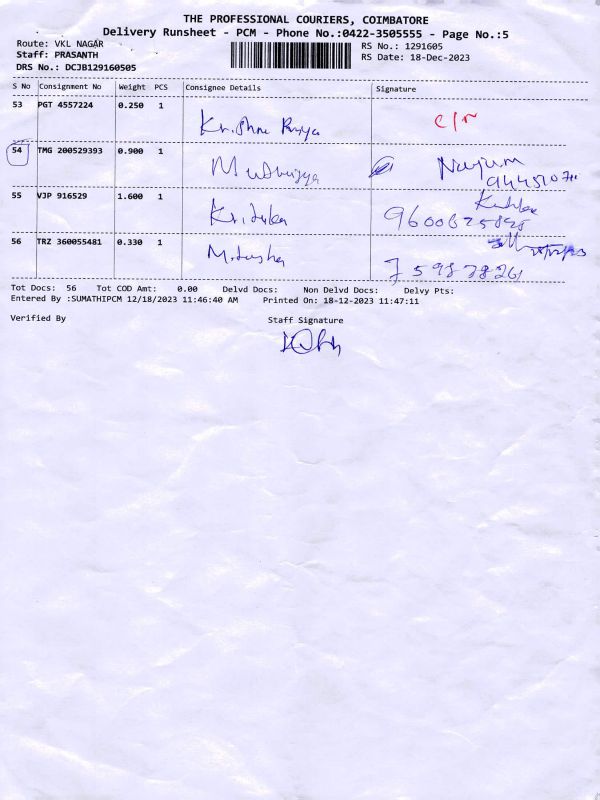 THE PROFESSIONAL COURIERS, COIMBATORE
Delivery Runsheet - PCM - Phone No.:0422-3505555 - Page No.:5
Route: VKL NAGAR
Staff: PRASANTH
DRS No.: DCJB129160505
RS No.: 1291605
RS Date: 18-Dec-2023
S No Consignment No Weight PCS Consignee Details Signature
53 PGT 4557224 0.250 1 Krishna Priya
54 TMG 200529393 0.900 1
55 VJP 916529 1.600 1
56 TRZ 360055481 0.330 1
Tot Docs: 56 Tot COD Amt: 0.00 Delvd Docs: Non Delvd Docs: Delvy Pts:
Entered By :SUMATHIPCM 12/18/2023 11:46:40 AM Printed On: 18-12-2023 11:47:11
Verified By Staff Signature